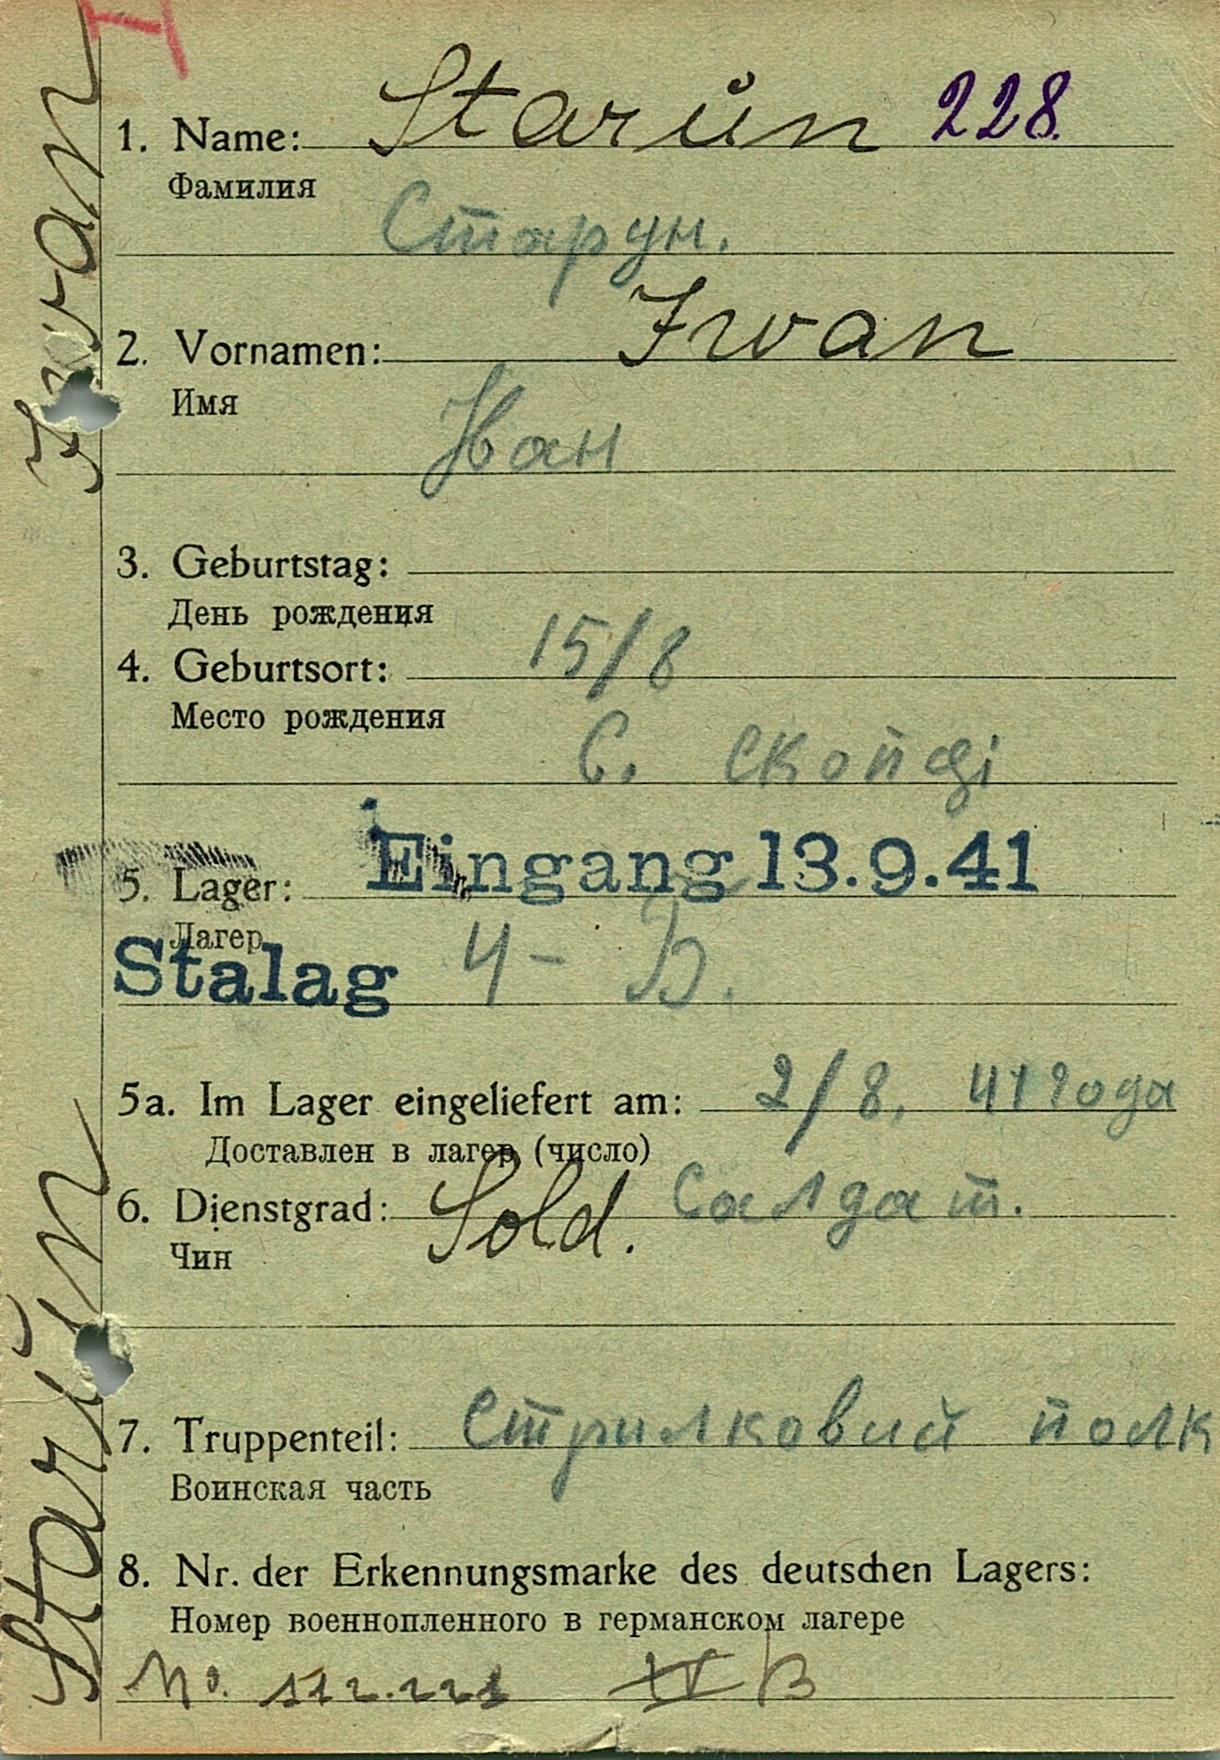 1. Name: Starŭn 228.
Фамилия
Старун.
2. Vornamen: Iwan
Имя
Иван
3. Geburtstag:
День рождения
15/8
4. Geburtsort:
Место рождения
С.
Eingang 13.9.41
5. Lager:
Лагер
Stalag 4- Б.
5a. Im Lager eingeliefert am: 2/8, 41 года
Доставлен в лагер (число)
6. Dienstgrad: Sold. Салдат.
Чин
7. Truppenteil: Стрилковий полк
Воинская часть
8. Nr. der Erkennungsmarke des deutschen Lagers:
Номер военнопленного в германском лагере
No. IV B
Starŭn Iwan